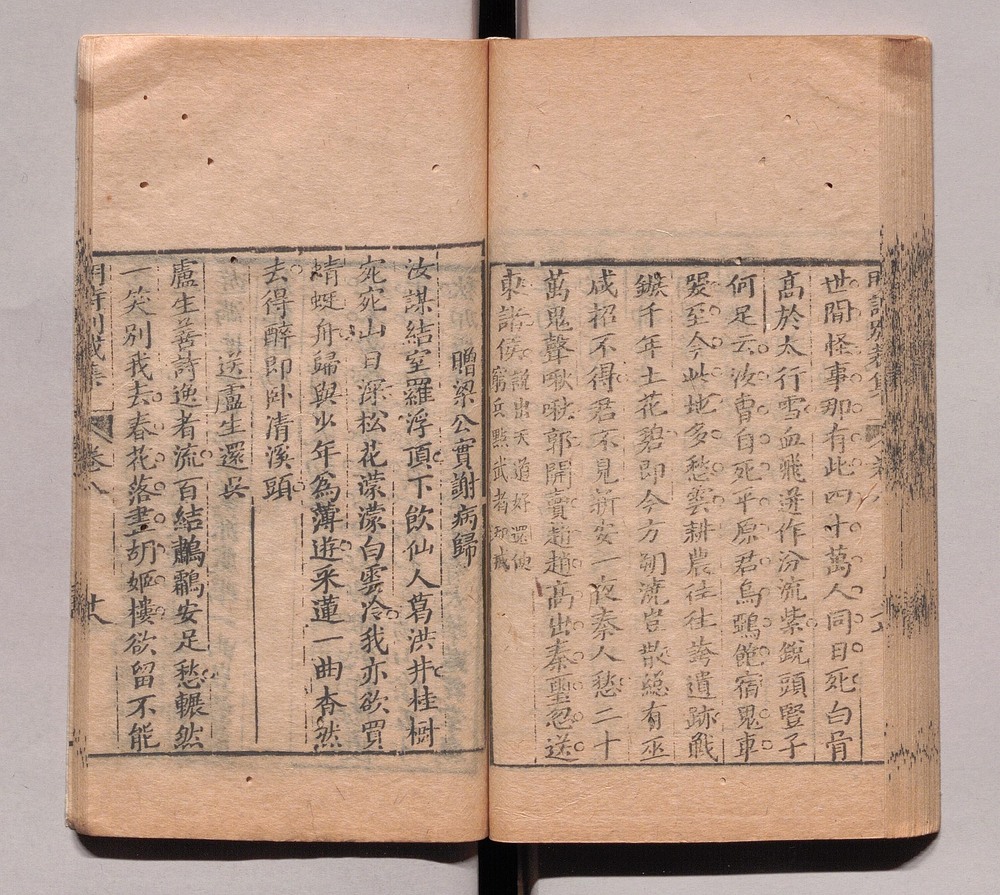 世間怪事那有此四十萬人同日死白骨
高於太行雪血飛迸作汾流紫銳頭豎子
何足云汝曹自死平原君烏鵶飽宿鬼車
哭至今此地多愁雲耕農往往誇遺跡戰
鏃千年土花碧即今方朔澆豈散總有巫
咸招不得君不見新安一夜秦人愁二十
萬鬼聲啾啾郭開賣趙趙高出秦璽忽送
東諸侯
說出天道好還使
窮兵黷武者知戒
贈梁公實謝病歸
汝謀結室羅浮頂下飲仙人葛洪井桂樹
宛宛山日深松花濛濛白雲冷我亦欲買
蜻蜓舟歸與少年為薄遊采蓮一曲杳然
去得醉即卧清溪頭
送盧生還吳
盧生善詩逸者流百結鷫鸘安足愁輾然
一笑別我去春花落盡胡姬樓欲留不能
明詩別裁集 卷八